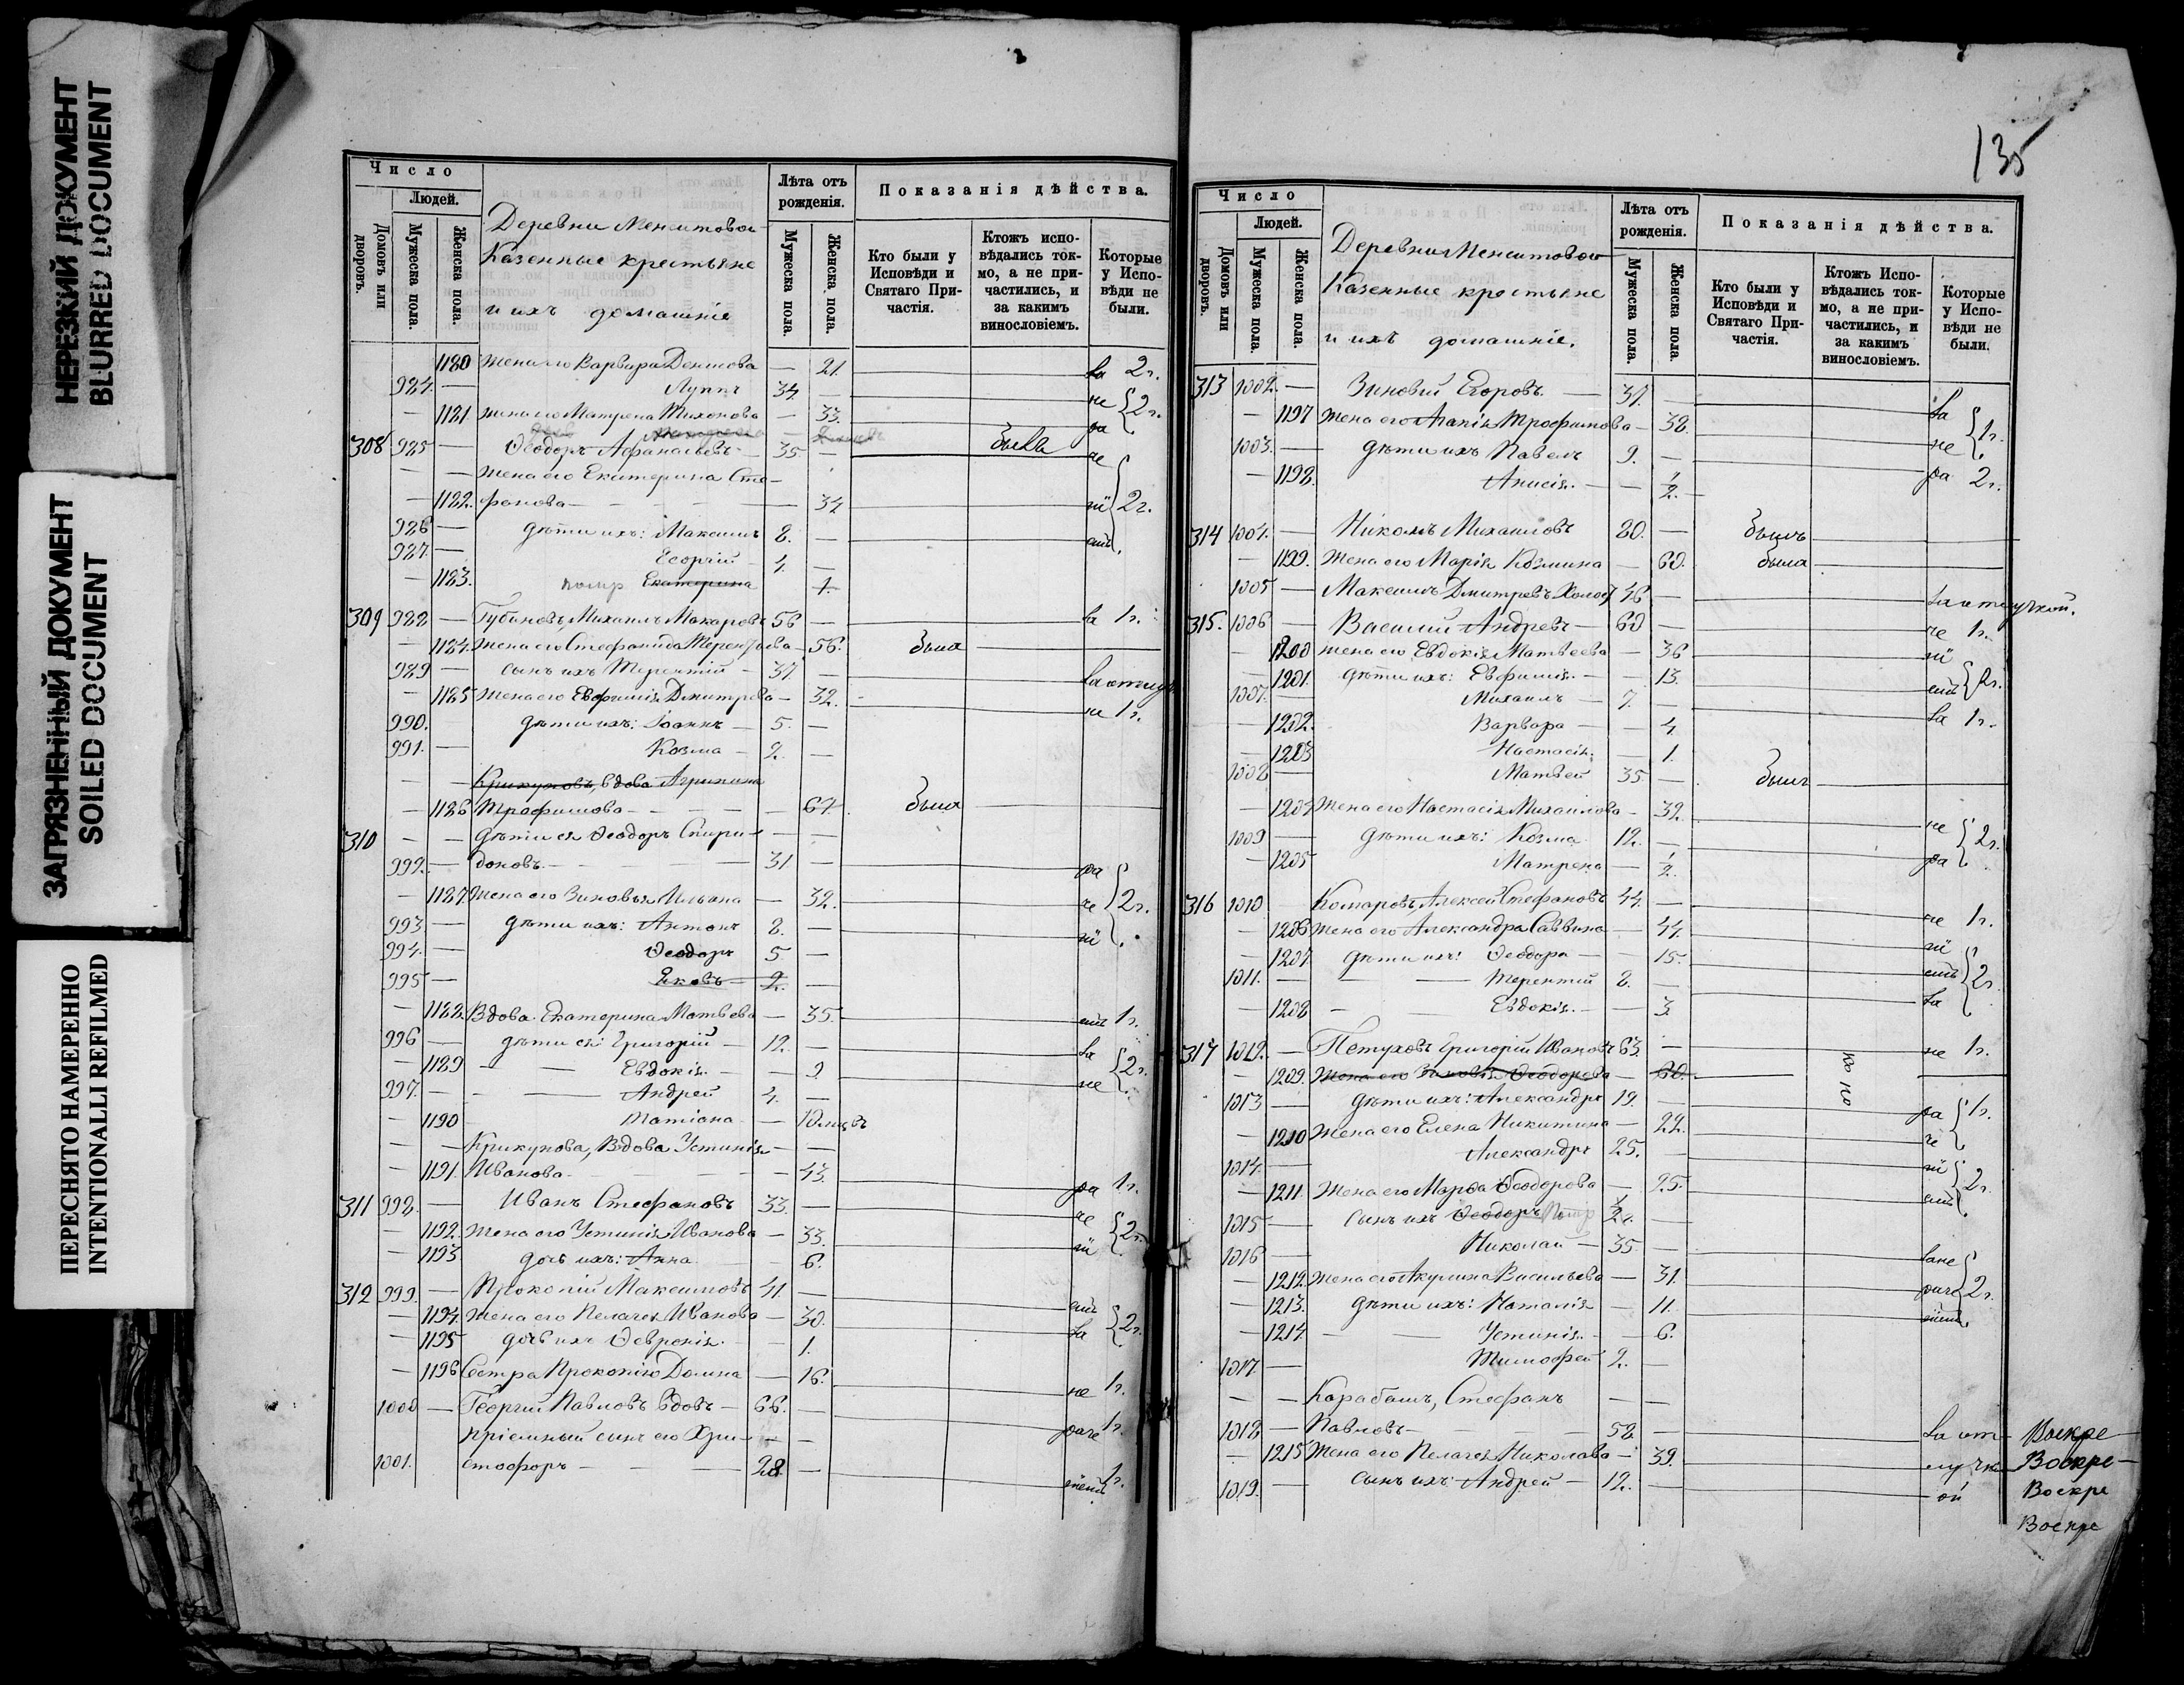 НЕРЕЗКИЙ ДОКУМЕНТ
BLURRED DOCUMENT
ЗАГРЯЗНЕННЫЙ ДОКУМЕНТ
SOILED DOCUMENT
ПЕРЕСНЯТО НАМЕРЕННО
INTENTIONALLI REFILMED
Число
Людей.
Домовъ или дворовъ.
Мужеска пола.
Женска пола.
Деревни
Казенные крестьяне
и ихъ домашніе
Лѣта отъ рожденія.
Мужеска пола.
Женска пола.
Показанія дѣйства.
Кто были у Исповѣди и Святаго Причастія.
Ктожъ исповѣдались токмо, а не причастились, и за какимъ винословіемъ.
Которые у Исповѣди не были.
1180 Жена его Варвара Денисова — 21. за 2 г.
984. — Луппъ 34 — не
1181 жена его Матрена Тихонова — 33. 2 г.
308 985 — Ѳеодоръ Афанасьевъ 35 —
— — Жена его Екатерина Сте-
— 1182. фанова — 34 2 г.
986 — дѣти ихъ: Максимъ 8. —
987. — Георгій 4. —
— 1183. помр Екатерина 1.
309 988 — Губановъ, Михаилъ Макаровъ 56 — за 1 г.
— 1184. Жена его Стефанида Терентьева — 56. была
989 — сынъ ихъ Терентій — 37 —
— 1185 Жена его Евфимія Дмитрева — 32. не 1 г.
990. дѣти ихъ: Іоаннъ — 5. —
991. — Козма — 2. —
— — Крикуновъ, вдова Агрипина
— 1186 Трофимова — 67. была
310 — — дѣти ея Ѳеодоръ Спири-
992. — доновъ — 31 — ра
— 1187. Жена его Зиновья Ильина — 32. че 2 г.
993 — дѣти ихъ: Антонъ 8. — ніи
994. — Ѳеодоръ 5 —
995 — Яковъ 2. —
— 1188. Вдова Екатерина Матвѣева — 35. 1 г.
996 — дѣти ея: Григорій — 12. — за
— 1189 — Евдокія. — 9 2 г.
997. — Андрей 4. — не
— 1190 Татіана — 10 мцвъ
— — Крикунова, Вдова Устинія —
— 1191. Иванова — 43. ра 1 г.
311 998. — Иванъ Стефановъ 33. — че
— 1192. Жена его Устинія Иванова — 33. 2 г.
— 1193 дочь ихъ: Анна 6.
312 999. — Прокопій Максимовъ 41. —
— 1194. Жена его Пелагея Иванова — 30. 2 г.
— 1195 дочь ихъ Ѳевронія. — 1. за
— 1196 Сестра Прокопію Домна — 16. не 1 г.
1000 — Георгій Павловъ вдовъ — 66. — 1 г.
пріемный сынъ его Хри- — —
1001. стофоръ — 28 — 1 г.
135
Число
Людей.
Домовъ или дворовъ.
Мужеска пола.
Женска пола.
Деревни
Казенные крестьяне
и ихъ домашніе.
Лѣта отъ рожденія.
Мужеска пола.
Женска пола.
Показанія дѣйства.
Кто были у Исповѣди и Святаго Причастія.
Ктожъ Исповѣдались токмо, а не причастились, и за какимъ винословіемъ.
Которые у Исповѣди не были.
313 1002. — Зиновій Егоровъ. — 37. — за
— 1197 Жена его Агапія Трофимова — 38. 1 г.
1003. — дѣти ихъ Павелъ 9. — не
— 1198. Анисія. — 1/2. ра 2 г.
314 1004. — Никонъ Михаиловъ 80. — былъ
— 1199. Жена его Марія Козмина — 60. была
1005 — Максимъ Дмитревъ Холос 46 — за отлучкой.
315. 1006 — Василій Андревъ — 60 — че 1 г.
— 1200 жена его Евдокія Матвѣева — 36 ніи
— 1201. дѣти ихъ: Евфимія. — 13. 2 г.
1007. Михаилъ — 7. —
— 1202. Варвара — 4 за 1 г.
— 1203 Настасія. — 1.
1008 — Матвей 35 — былъ
— 1204 Жена его Настасія Михаилова — 32.
1009 — дѣти ихъ: Козма 12. — не 2 г.
— 1205 Матрена — 1/2. ра
316 1010 Комаровъ, Алексей Стефановъ 44. — че 1 г.
— 1206 Жена его Александра Саввина — 44. ніи
— 1207 дѣти ихъ: Ѳеодора — 15.
1011. — Терентій 8. — 2 г.
— 1208 — Евдокія. — 3 за
317 1012. — Петуховъ Григорій Ивановъ 63. — не 1 г.
— 1209. Жена его Зиновія Ѳеодорова — 60.
1013 — дѣти ихъ: Александръ 19. — ра 1 г.
— 1210 Жена его Елена Никитина — 22. че
1014. — Александръ 25. — ніи
— 1211. Жена его Марѳа Ѳеодорова — 25. 2 г.
1015 — сынъ ихъ Ѳеодоръ —
1016 — Николай — 35. —
— 1212. Жена его Акулина Васильева — 31. 2 г.
— 1213. дѣти ихъ: Наталія — 11.
— 1214 — Устинія. — 6.
1017. — Тимофей 2. —
— — Карабашъ, Стефанъ — —
1018 — Павловъ — 52 — за от-
— 1215 Жена его Пелагея Николава — 39. лучк
1019. — сынъ ихъ: Андрей — 12. — ой
Воскре
Воскре
Воскре
Воскре